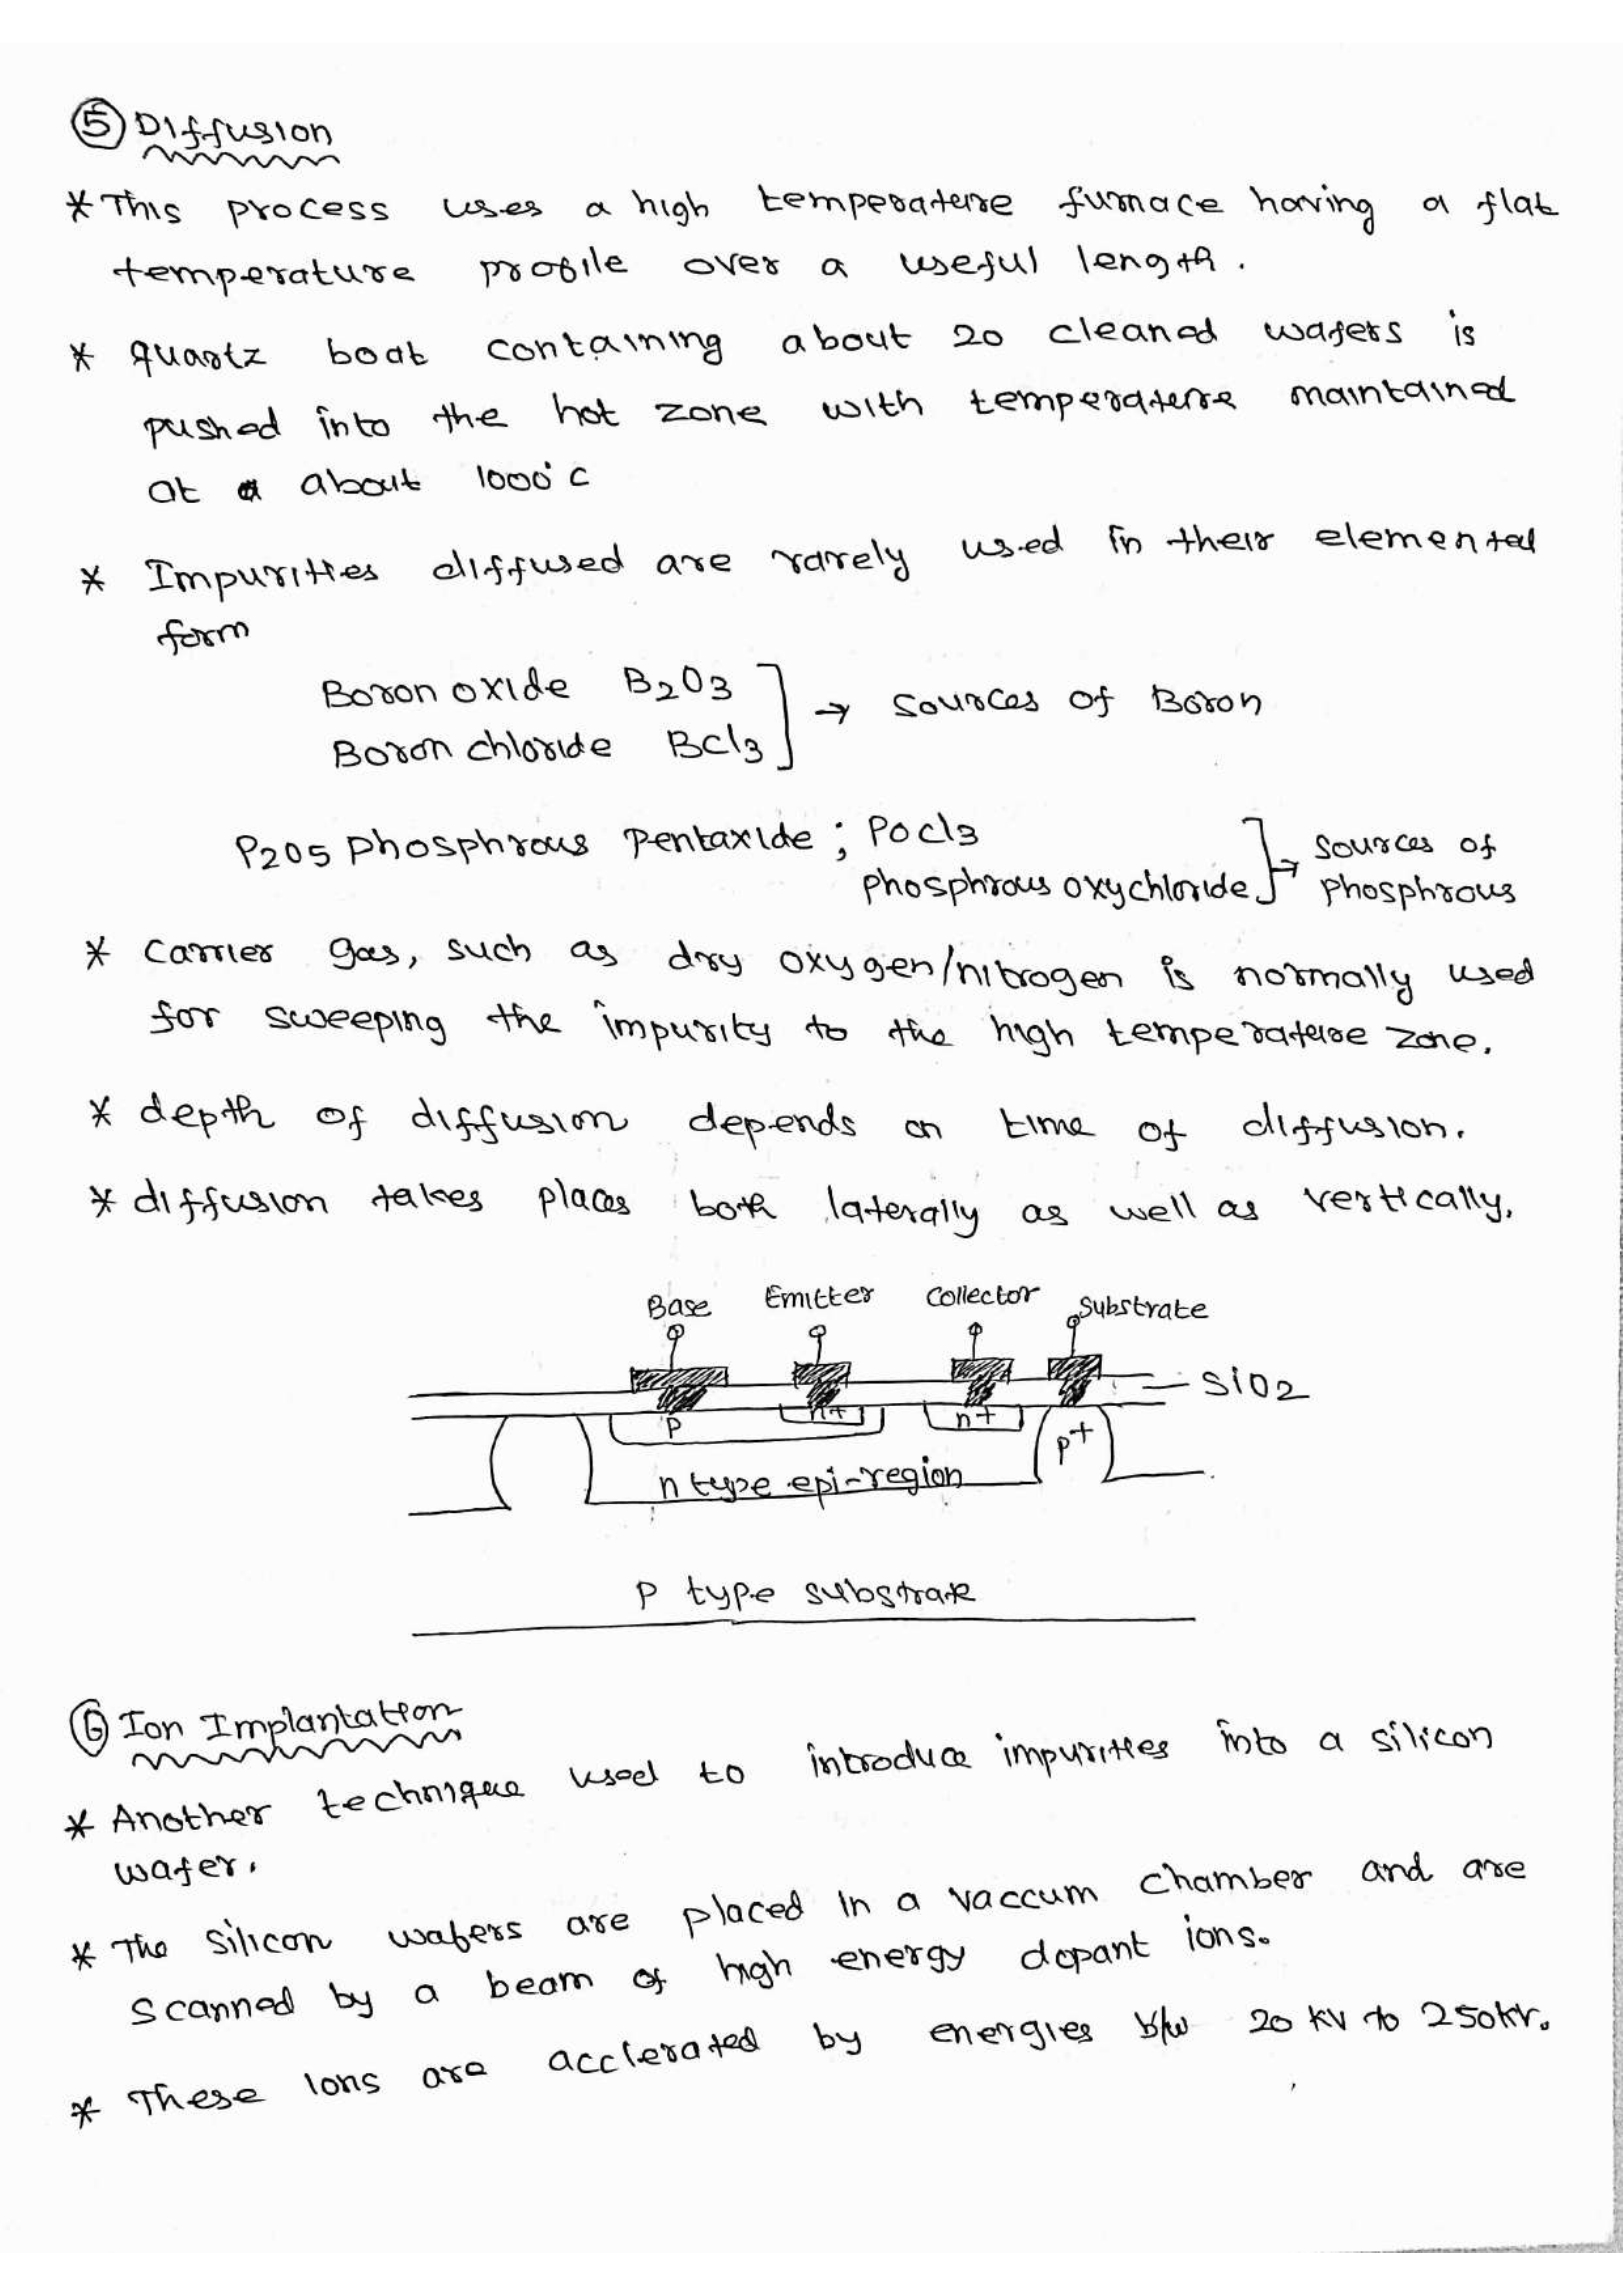 ⑤ Diffusion
* This process uses a high temperature furnace having a flat
temperature profile over a useful length.
* quartz boat containing about 20 cleaned wafers is
pushed into the hot zone with temperature maintained
at a about 1000°c
* Impurities diffused are rarely used in their elemental
form
Boron oxide B2O3
→ sources of Boron
Boron chloride BCl3
P2O5 Phosphrous Pentaxide ; POCl3
phosphrous oxychloride
→ sources of
phosphrous
* Carrier gas, such as dry oxygen/nitrogen is normally used
for sweeping the impurity to the high temperature zone.
* depth of diffusion depends on time of diffusion.
* diffusion takes places both laterally as well as vertically.
Base Emitter Collector Substrate
SiO2
P n+ n+ p+
n type epi-region
P type substrate
⑥ Ion Implantation
* Another technique used to introduce impurities into a silicon
wafer.
* The silicon wafers are placed in a vaccum chamber and are
scanned by a beam of high energy dopant ions.
* These Ions are acclerated by energies b/w 20 KV to 250KV.